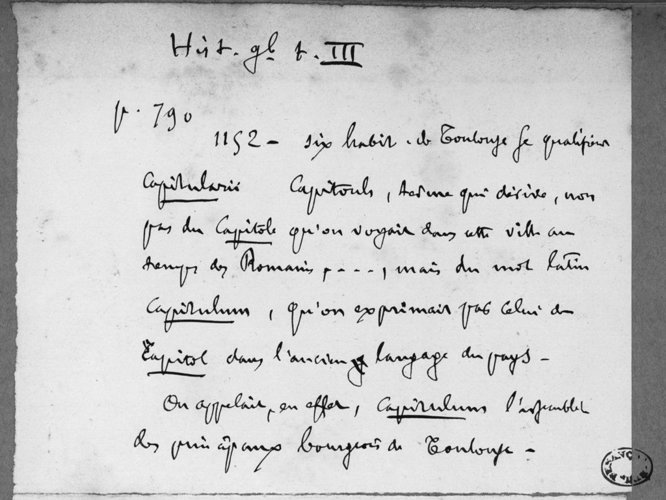 Hist. gl t. III
p. 790
1152 - six habit. de Toulouse se qualifient
Capitularii Capitouls, terme qui dérive, non
pas du Capitole qu'on voyait dans cette ville au
temps des Romains, ...., mais du mot latin
Capitulum, qu'on exprimait par celui de
Capitol dans l'ancien langage du pays -
On appelait, en effet, Capitulum l'assemblée
des principaux bourgeois de Toulouse -